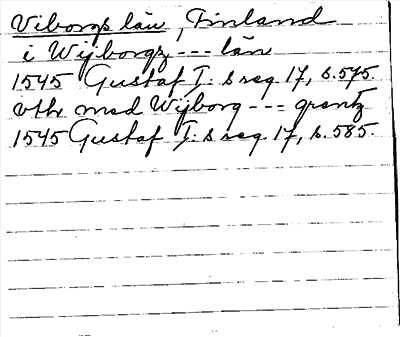 Viborgs län, Finland
i Wijborgz --- län
1545 Gustaf I:s reg 17, s. 575.
vthr med Wijborg --- grentz
1545 Gustaf I:s reg 17, s. 585.